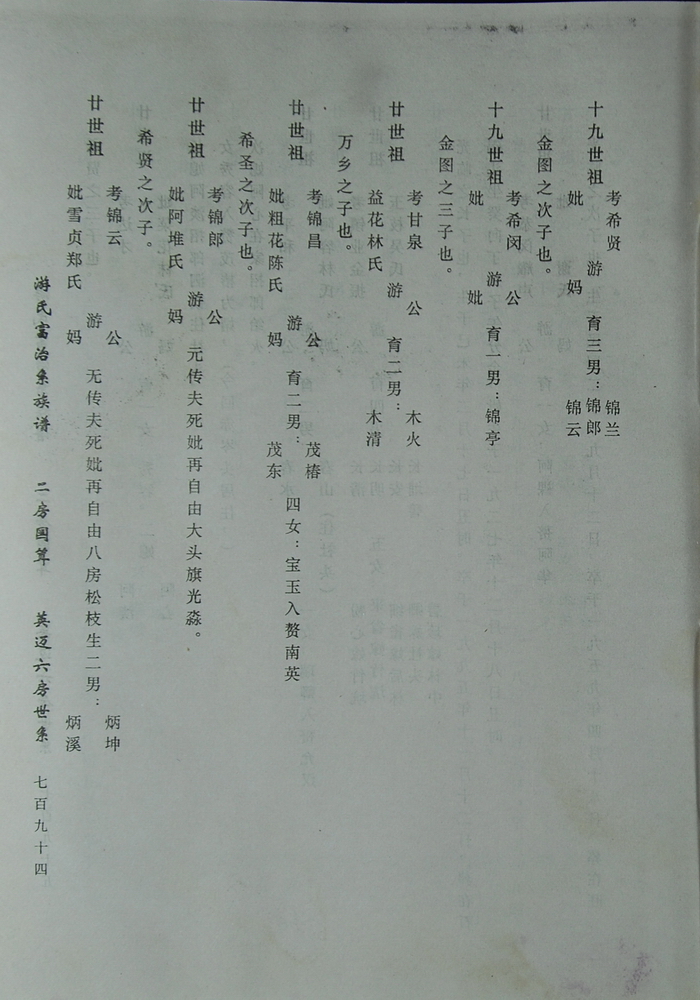 十九世祖 考希贤 妣 游 公 妈 育三男：锦兰 锦郎 锦云
金图之次子也。
十九世祖 考希闵 妣 游 公 妣 育一男：锦亭
金图之三子也。
廿世祖 考甘泉 益花林氏 游 公 育二男： 木火 木清
万乡之子也。
廿世祖 考锦昌 妣粗花陈氏 游 公。 妈 育二男： 茂椿 茂东 四女：宝玉入赘南英
希圣之次子也。
廿世祖 考锦郎 妣阿堆氏 游 公 妈 元传夫死妣再自由大头旗光淼。
希贤之次子。
廿世祖 考锦云 妣雪贞郑氏 游 公 妈 无传夫死妣再自由八房松枝生二男： 炳坤 炳溪
游氏富治系族谱 二房国算 英迈六房世系 七百九十四